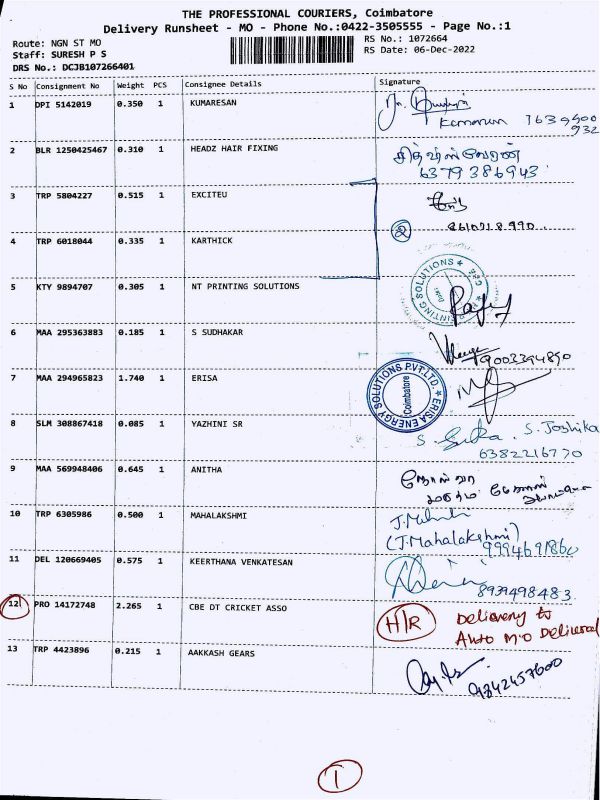 THE PROFESSIONAL COURIERS, Coimbatore
Delivery Runsheet - MO - Phone No.:0422-3505555 - Page No.:1
Route: NGN ST MO
RS No.: 1072664
Staff: SURESH P S
RS Date: 06-Dec-2022
DRS No.: DCJB107266401
S No Consignment No Weight PCS Consignee Details Signature
1 DPI 5142019 0.350 1 KUMARESAN
2 BLR 1250425467 0.310 1 HEADZ HAIR FIXING
6379386943
3 TRP 5804227 0.515 1 EXCITEU
4 TRP 6018044 0.335 1 KARTHICK
2
5 KTY 9894707 0.305 1 NT PRINTING SOLUTIONS
6 MAA 295363883 0.185 1 S SUDHAKAR
9003394890
7 MAA 294965823 1.740 1 ERISA
ERISA ENERGY SOLUTIONS PVT.LTD.
Coimbatore
8 SLM 308867418 0.085 1 YAZHINI SR
S. Joshika
6382216770
9 MAA 569948406 0.645 1 ANITHA
10 TRP 6305986 0.500 1 MAHALAKSHMI
(J.Mahalakshmi)
9994691860
11 DEL 120669405 0.575 1 KEERTHANA VENKATESAN
8939498483
12 PRO 14172748 2.265 1 CBE DT CRICKET ASSO
H/R Delivery to
Auto M.O Delivered
13 TRP 4423896 0.215 1 AAKKASH GEARS
9842457600
1